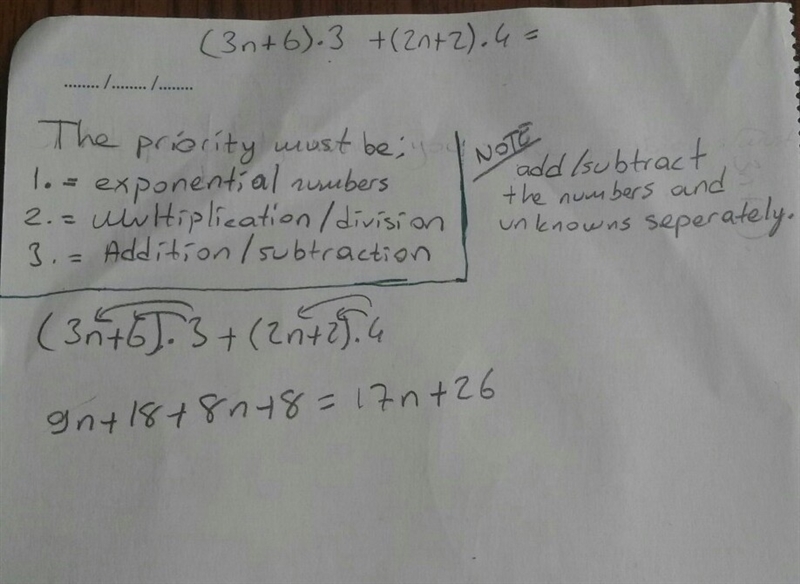 (3n+6).3 +(2n+2).4=
......../......../........
The priority must be;
1.= exponential numbers
2.= Multiplication/division
3.= Addition/subtraction
NOTE
add/subtract
the numbers and
unknowns seperately.
(3n+6).3+(2n+2).4
9n+18+8n+8=17n+26